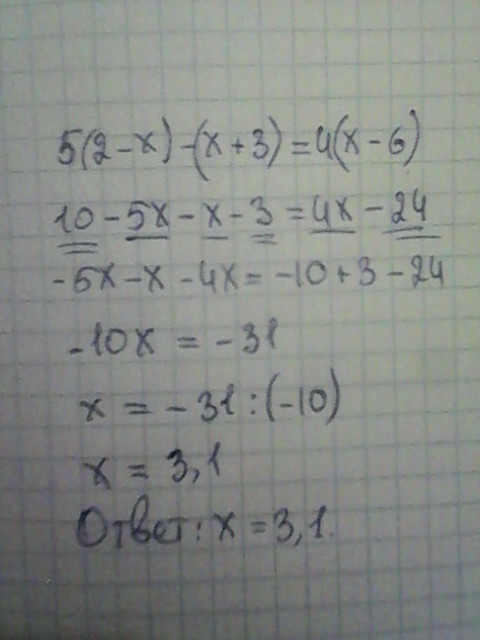 5(2-x)-(x+3)=4(x-6)
10-5x-x-3=4x-24
-5x-x-4x=-10+3-24
-10x=-31
x=-31:(-10)
x=3,1
Ответ: x=3,1.